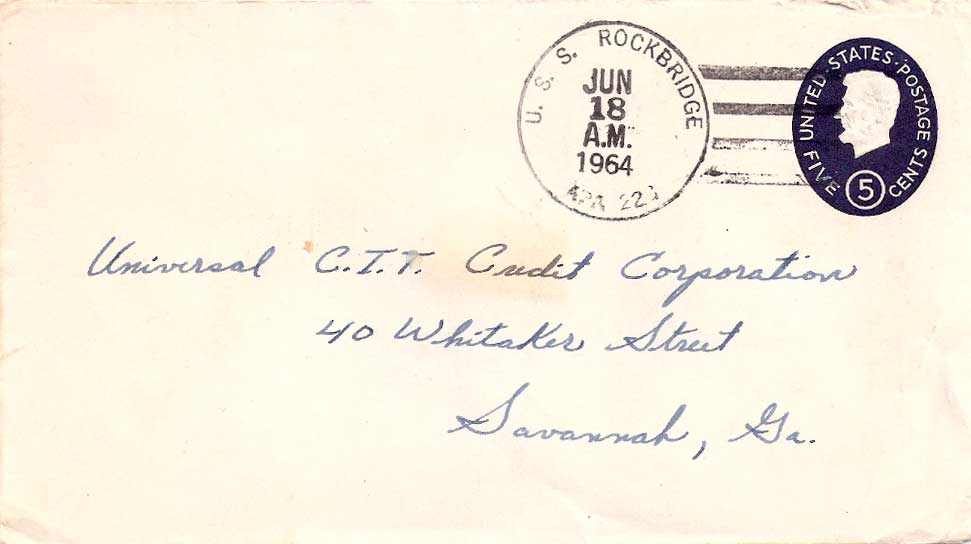 U. S. S. ROCKBRIDGE
JUN
18
A.M.
1964
UNITED STATES · POSTAGE
FIVE 5 CENTS
Universal C.I.T. Credit Corporation
40 Whitaker Street
Savannah, Ga.